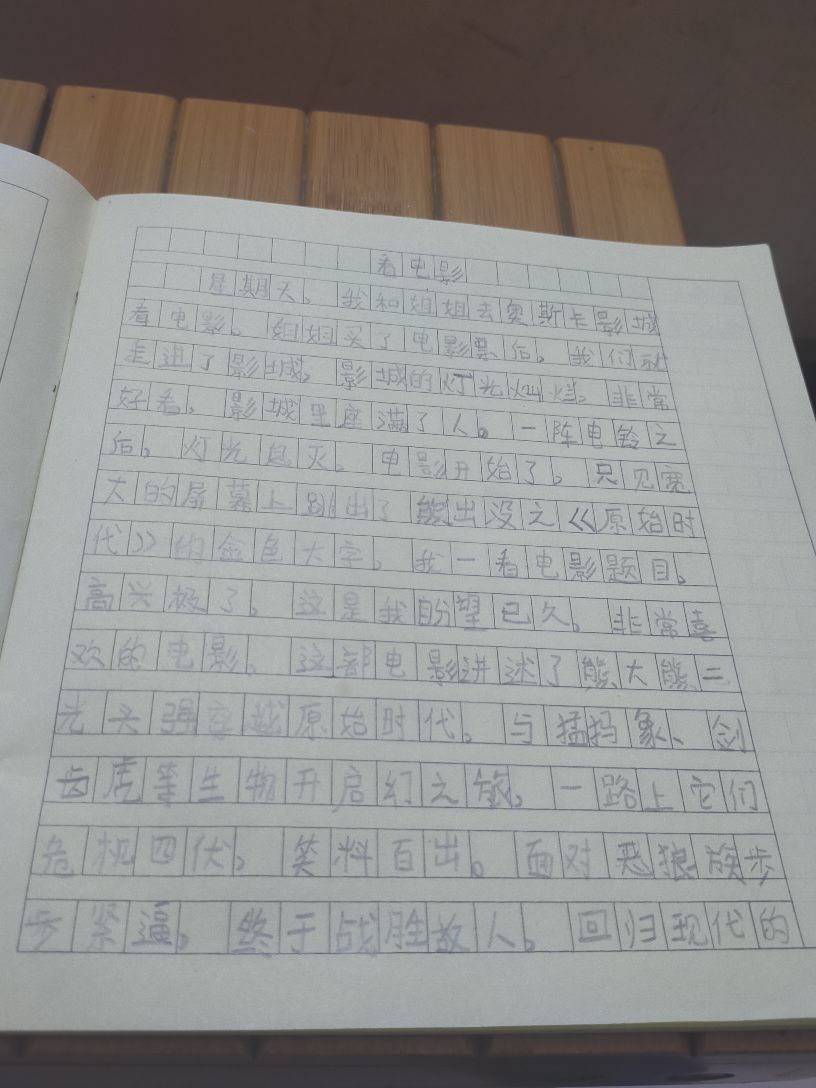 看电影
星期天。我和姐姐去奥斯卡影城
看电影。姐姐买了电影票后。我们就
走进了影城。影城的灯光灿烂。非常
好看。影城里座满了人。一阵电铃之
后。灯光息灭。电影开始了。只见宽
大的屏幕上跳出了熊出没之《原始时
代》的金色大字。我一看电影题目。
高兴极了。这是我盼望已久。非常喜
欢的电影。这部电影讲述了熊大熊二
光头强穿越原始时代。与猛犸象、剑
齿虎等生物开启幻之旅。一路上它们
危机四伏。笑料百出。面对恶狼族步
步紧逼。终于战胜敌人。回归现代的